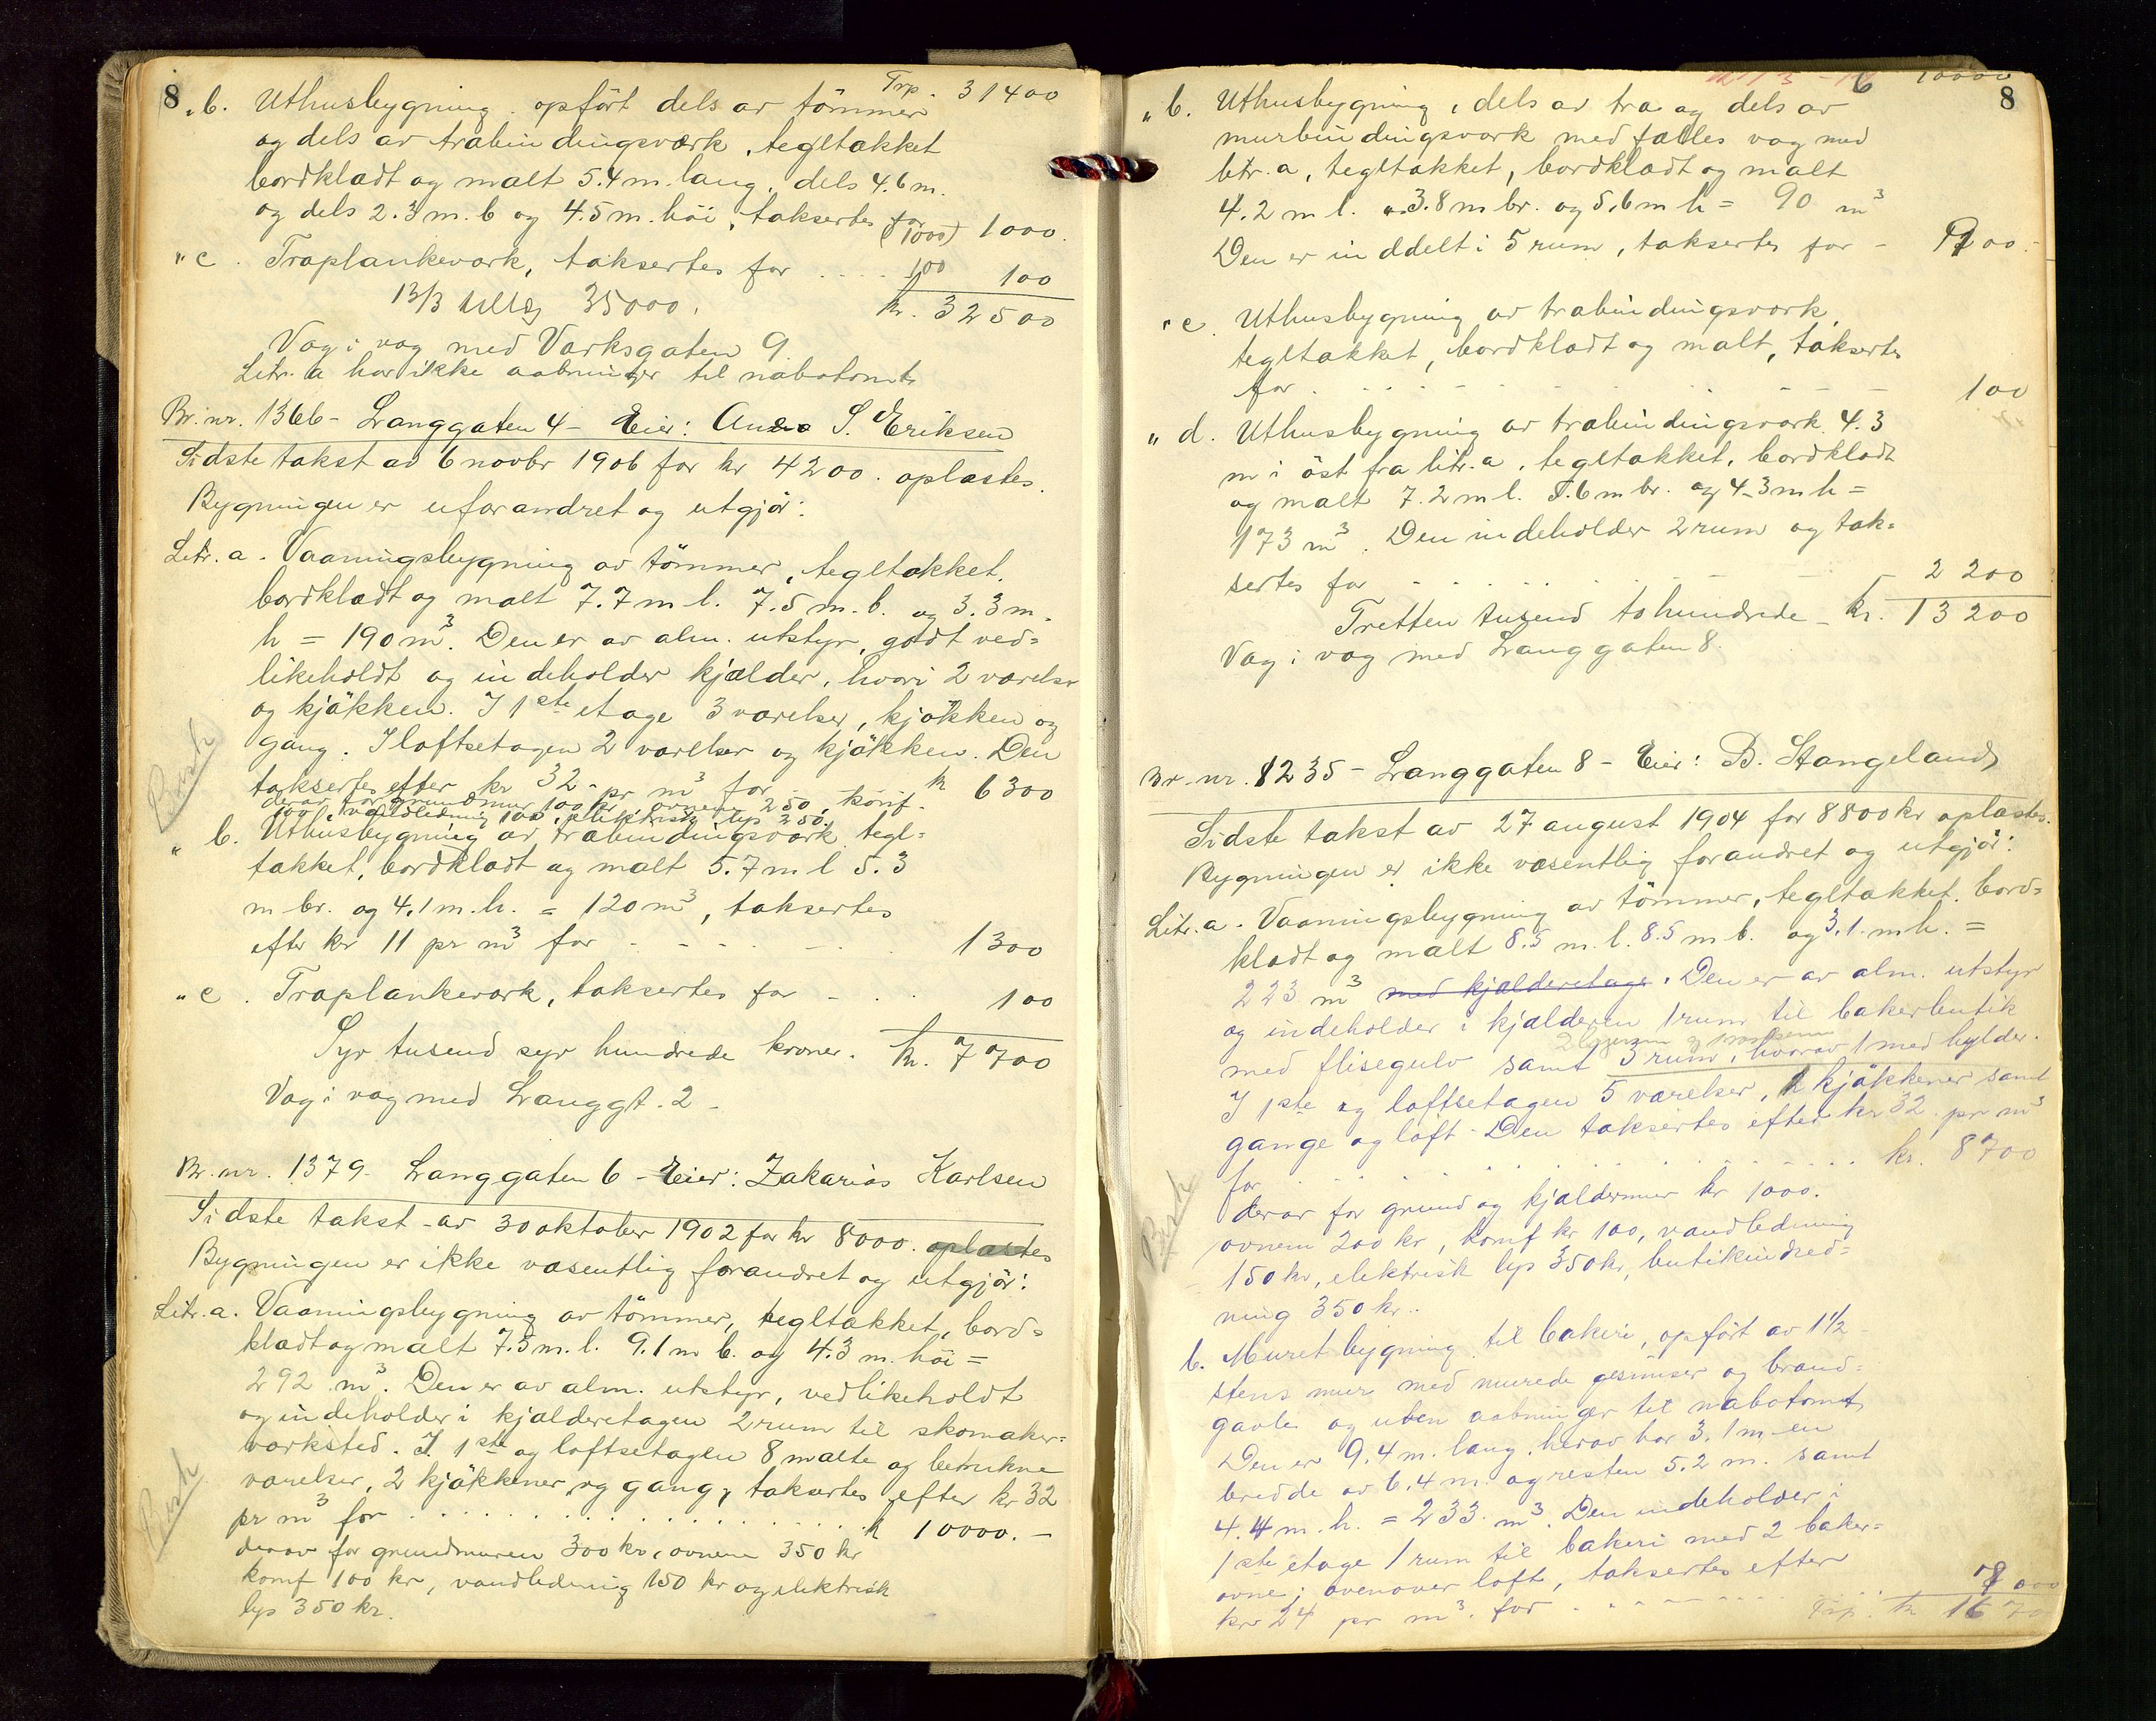 8
Trp. 31400
„ b. Uthusbygning opført dels av tømmer
og dels av træbindingsværk, tegltækket
bordklædt og malt 5.4 m. lang, dels 4.6 m.
og dels 2.3 m. b og 4.5 m. høi, taksertes for (1000) 1000.
„ c. Træplankeværk, taksertes for .... 100 100
13/3 tillæg 35000. kr. 32500
Væg i væg med Værksgaten 9.
Litr. a har ikke aabninger til nabotomt.
Br. nr. 1366 - Langgaten 4 - Eier: S. Eriksen
Sidste takst av 6 novbr 1906 for kr 4200. oplæstes.
Bygningen er uforandret og utgjør:
Litr. a. Vaaningsbygning av tømmer, tegltækket,
bordklædt og malt 7.7 m l. 7.5 m. b. og 3.3 m.
h = 190 m³. Den er av alm. utstyr, godt ved=
likeholdt og indeholder kjælder, hvori 2 værelser
og kjøkken. I 1ste etage 3 værelser, kjøkken og
gang. I loftsetagen 2 værelser og kjøkken. Den
taksertes efter kr 32.- pr m³ for - kr 6300
derav for grundmur 100 kr, ovnene 250, komf.
100, vandledning 100, elektrisk lys 250.
„ b. Uthusbygning av træbindingsværk, tegl=
tækket, bordklædt og malt 5.7 m l 5.3
m br. og 4.1 m. h. = 120 m³, taksertes
efter kr 11 pr m³ for - - - - - 1300
„ c. Træplankeværk, taksertes for - . . 100
Syv tusend syv hundrede kroner. kr. 7700
Væg i væg med Langgt. 2 -
Br. nr. 1379 - Langgaten 6 - Eier: Zakarias Karlsen
Sidste takst av 30 oktober 1902 for kr 8000. oplæstes
Bygningen er ikke væsentlig forandret og utgjør:
Litr. a. Vaaningsbygning av tømmer, tegltækket, bord=
klædt og malt 7.5 m. l. 9.1 m b. og 4.3 m. høi =
292 m³. Den er av alm. utstyr, vedlikeholdt
og indeholder i kjælderetagen 2 rum til skomaker=
værksted. I 1ste og loftsetagen 8 malte og betrukne
værelser, 2 kjøkkener og gang, taksertes efter kr 32
pr m³ for . . . . . . . . kr 10000.-
derav for grundmuren 300 kr, ovnene 350 kr
komf 100 kr, vandledning 150 kr og elektrisk
lys 350 kr.
8
10000
„ b. Uthusbygning, dels av træ og dels av
murbindingsværk med fælles væg med
litr. a, tegltækket, bordklædt og malt
4.2 m l. 3.8 m br. og 5.6 m h = 90 m³
Den er inddelt i 5 rum, taksertes for -
„ c. Uthusbygning av træbindingsværk,
tegltækket, bordklædt og malt, taksertes
for . . - - - - - 100
„ d. Uthusbygning av træbindingsværk 4.3
m i øst fra litr. a, tegltækket, bordklædt
og malt 7.2 m l. 5.6 m br. og 4.3 m h =
173 m³. Den indeholder 2 rum og tak=
sertes for - - - - - 2200
Tretten tusend tohundrede - kr. 13200
Væg i væg med Langgaten 8.
Br. nr. 1235 - Langgaten 8 - Eier: B. Stangeland
Sidste takst av 27 august 1904 for 8800 kr oplæstes.
Bygningen er ikke væsentlig forandret og utgjør:
Litr. a. Vaaningsbygning av tømmer, tegltækket, bord=
klædt og malt 8.5 m. l. 8.5 m b. og 3.1. m h. =
223 m³ med kjælderetage. Den er av alm. utstyr
og indeholder i kjælderen 1 rum til bakerbutik
med flisegulv samt 3 rum, hvorav 1 med hylder.
I 1ste og loftsetagen 5 værelser, 2 kjøkkener samt
gange og loft. Den taksertes efter kr 32 pr m³
for . . . . . . . . kr. 8700
derav for grund og kjældermur kr 1000.
ovnene 200 kr, komf kr 100, vandledning
150 kr, elektrisk lys 350 kr, butikindred=
ning 350 kr..
b. Muret bygning til bakeri, opført av 1½
stens mur med murede gesimser og brand=
gavle og uten aabninger til nabotomt
Den er 9.4 m. lang, herav har 3.1 m en
bredde av 6.4 m. og resten 5.2 m. samt
4.4 m. h. = 233. m³. Den indeholder i
1ste etage 1 rum til bakeri med 2 baker=
ovne; ovenover loft, taksertes efter
kr 24 pr m³. for - - - - - 8000
Trp. kr